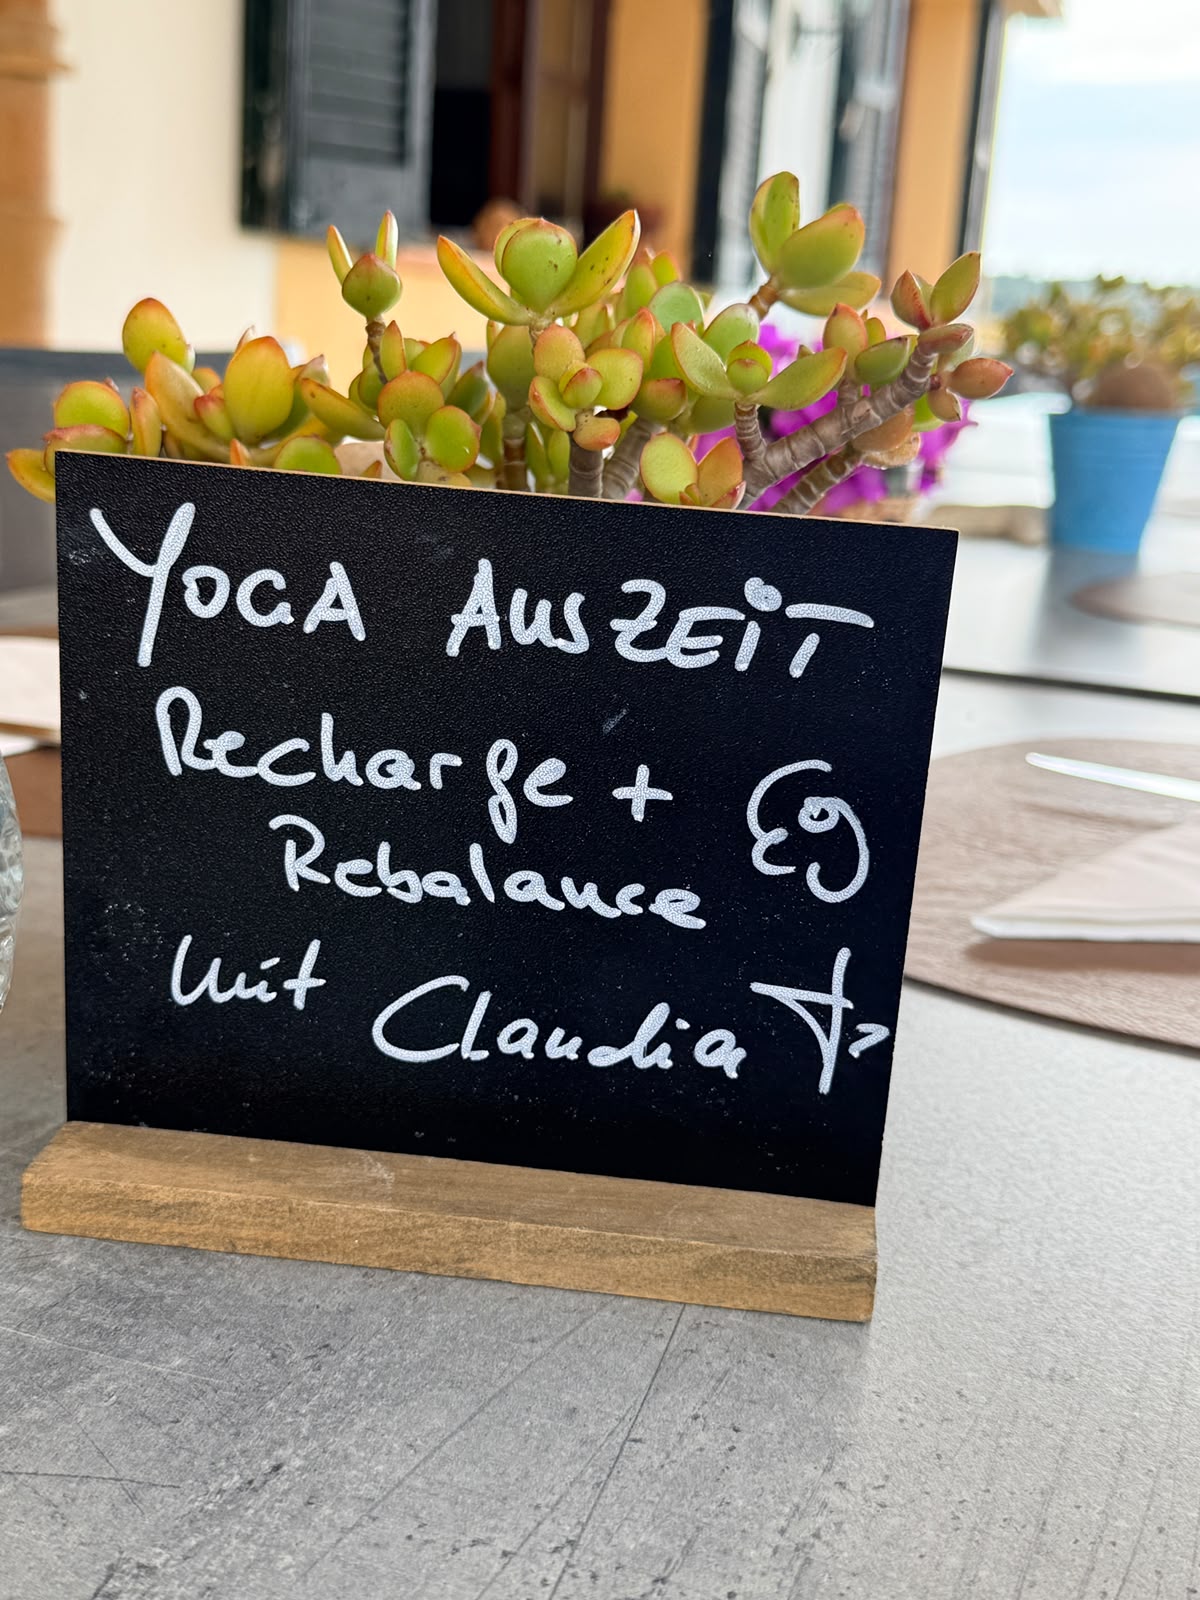 YOGA AUSZEiT
Recharge +
Rebalance
mit Claudia